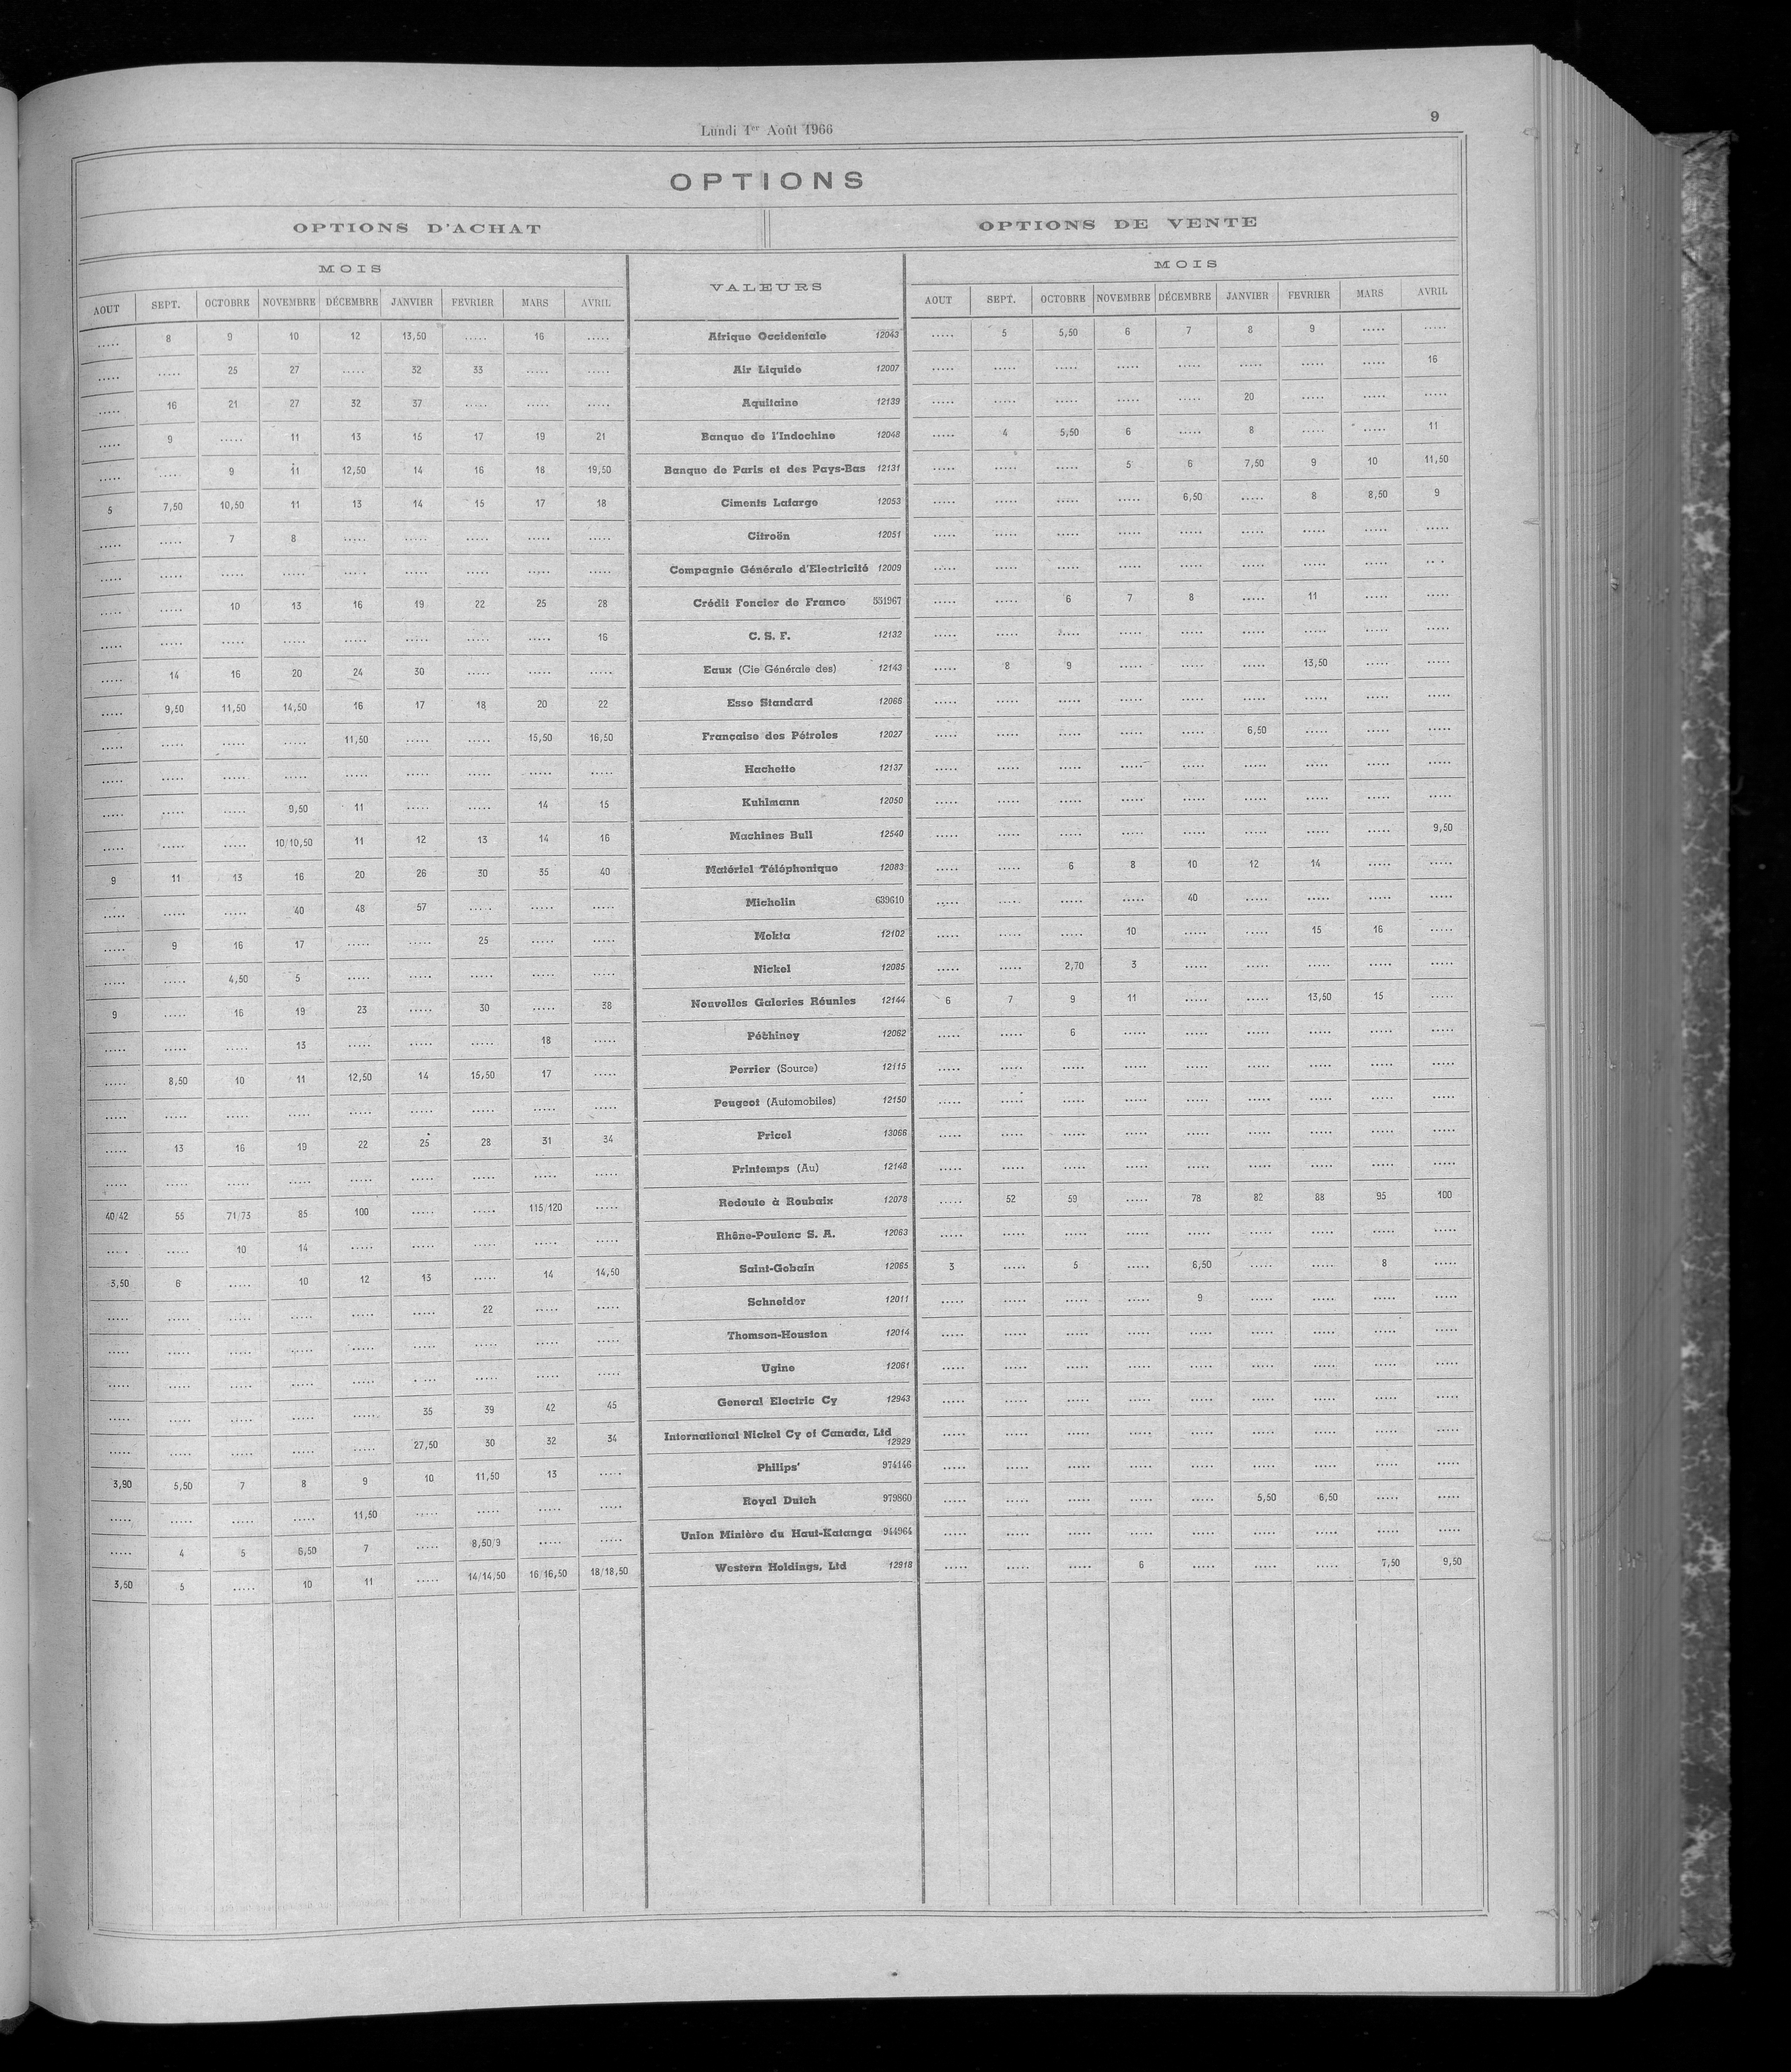 Lundi 1er Août 1966
9
OPTIONS
OPTIONS D'ACHAT
OPTIONS DE VENTE
MOIS
VALEURS
MOIS
AOUT SEPT. OCTOBRE NOVEMBRE DÉCEMBRE JANVIER FEVRIER MARS AVRIL AOUT SEPT. OCTOBRE NOVEMBRE DÉCEMBRE JANVIER FEVRIER MARS AVRIL
..... 8 9 10 12 13,50 ..... 16 ..... Afrique Occidentale 12043 ..... 5 5,50 6 7 8 9 ..... .....
..... ..... 25 27 ..... 32 33 ..... ..... Air Liquide 12007 ..... ..... ..... ..... ..... ..... ..... ..... 16
..... 16 21 27 32 37 ..... ..... ..... Aquitaine 12139 ..... ..... ..... ..... ..... 20 ..... ..... .....
..... 9 ..... 11 13 15 17 19 21 Banque de l'Indochine 12048 ..... 4 5,50 6 ..... 8 ..... ..... 11
..... ..... 9 11 12,50 14 16 18 19,50 Banque de Paris et des Pays-Bas 12131 ..... ..... ..... 5 6 7,50 9 10 11,50
5 7,50 10,50 11 13 14 15 17 18 Ciments Lafarge 12053 ..... ..... ..... ..... 6,50 ..... 8 8,50 9
..... ..... 7 8 ..... ..... ..... ..... ..... Citroën 12051 ..... ..... ..... ..... ..... ..... ..... ..... .....
..... ..... ..... ..... ..... ..... ..... ..... ..... Compagnie Générale d'Electricité 12009 ..... ..... ..... ..... ..... ..... ..... ..... .....
..... ..... 10 13 16 19 22 25 28 Crédit Foncier de France 551967 ..... ..... 6 7 8 ..... 11 ..... .....
..... ..... ..... ..... ..... ..... ..... ..... 16 C. S. F. 12132 ..... ..... ..... ..... ..... ..... ..... ..... .....
..... 14 16 20 24 30 ..... ..... ..... Eaux (Cie Générale des) 12143 ..... 8 9 ..... ..... ..... 13,50 ..... .....
..... 9,50 11,50 14,50 16 17 18 20 22 Esso Standard 12066 ..... ..... ..... ..... ..... ..... ..... ..... .....
..... ..... ..... ..... 11,50 ..... ..... 15,50 16,50 Française des Pétroles 12027 ..... ..... ..... ..... ..... 6,50 ..... ..... .....
..... ..... ..... ..... ..... ..... ..... ..... ..... Hachette 12137 ..... ..... ..... ..... ..... ..... ..... ..... .....
..... ..... ..... 9,50 11 ..... ..... 14 15 Kuhlmann 12050 ..... ..... ..... ..... ..... ..... ..... ..... .....
..... ..... ..... 10/10,50 11 12 13 14 16 Machines Bull 12540 ..... ..... ..... ..... ..... ..... ..... ..... 9,50
9 11 13 16 20 26 30 35 40 Matériel Téléphonique 12083 ..... ..... 6 8 10 12 14 ..... .....
..... ..... ..... 40 48 57 ..... ..... ..... Michelin 639610 ..... ..... ..... ..... 40 ..... ..... ..... .....
..... 9 16 17 ..... ..... 25 ..... ..... Mokta 12102 ..... ..... ..... 10 ..... ..... 15 16 .....
..... ..... 4,50 5 ..... ..... ..... ..... ..... Nickel 12085 ..... ..... 2,70 3 ..... ..... ..... ..... .....
9 ..... 16 19 23 ..... 30 ..... 38 Nouvelles Galeries Réunies 12144 6 7 9 11 ..... ..... 13,50 15 .....
..... ..... ..... 13 ..... ..... ..... 18 ..... Péchiney 12062 ..... ..... 6 ..... ..... ..... ..... ..... .....
..... 8,50 10 11 12,50 14 15,50 17 ..... Perrier (Source) 12115 ..... ..... ..... ..... ..... ..... ..... ..... .....
..... ..... ..... ..... ..... ..... ..... ..... ..... Peugeot (Automobiles) 12150 ..... ..... ..... ..... ..... ..... ..... ..... .....
..... 13 16 19 22 25 28 31 34 Pricel 13066 ..... ..... ..... ..... ..... ..... ..... ..... .....
..... ..... ..... ..... ..... ..... ..... ..... ..... Printemps (Au) 12148 ..... ..... ..... ..... ..... ..... ..... ..... .....
40/42 55 71/73 85 100 ..... ..... 115/120 ..... Redoute à Roubaix 12078 ..... 52 59 ..... 78 82 88 95 100
..... ..... 10 14 ..... ..... ..... ..... ..... Rhône-Poulenc S. A. 12063 ..... ..... ..... ..... ..... ..... ..... ..... .....
3,50 6 ..... 10 12 13 ..... 14 14,50 Saint-Gobain 12065 3 ..... 5 ..... 6,50 ..... ..... 8 .....
..... ..... ..... ..... ..... ..... 22 ..... ..... Schneider 12011 ..... ..... ..... ..... 9 ..... ..... ..... .....
..... ..... ..... ..... ..... ..... ..... ..... ..... Thomson-Houston 12014 ..... ..... ..... ..... ..... ..... ..... ..... .....
..... ..... ..... ..... ..... ..... ..... ..... ..... Ugine 12061 ..... ..... ..... ..... ..... ..... ..... ..... .....
..... ..... ..... ..... ..... 35 39 42 45 General Electric Cy 12943 ..... ..... ..... ..... ..... ..... ..... ..... .....
..... ..... ..... ..... ..... 27,50 30 32 34 International Nickel Cy of Canada, Ltd 12929 ..... ..... ..... ..... ..... ..... ..... ..... .....
3,90 5,50 7 8 9 10 11,50 13 ..... Philips' 974146 ..... ..... ..... ..... ..... ..... ..... ..... .....
..... ..... ..... ..... 11,50 ..... ..... ..... ..... Royal Dutch 979860 ..... ..... ..... ..... ..... 5,50 6,50 ..... .....
..... 4 5 6,50 7 ..... 8,50/9 ..... ..... Union Minière du Haut-Katanga 944964 ..... ..... ..... ..... ..... ..... ..... ..... .....
3,50 5 ..... 10 11 ..... 14/14,50 16/16,50 18/18,50 Western Holdings, Ltd 12918 ..... ..... ..... 6 ..... ..... ..... 7,50 9,50